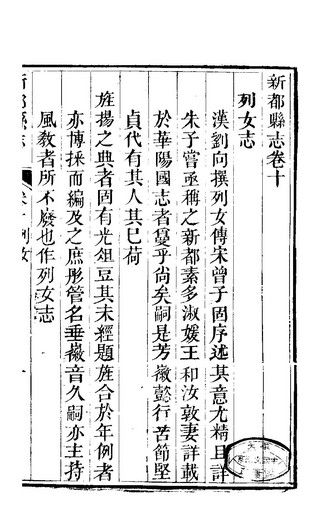 新都縣志卷十
列女志
漢劉向撰列女傳宋曾子固序述其意尤精且詳
朱子嘗亟稱之新都素多淑媛王和汝敦妻詳載
於華陽國志者敻乎尚矣嗣是芳徽懿行苦節堅
貞代有其人其已荷
旌揚之典者固有光俎豆其未經題旌合於年例者
亦博採而編及之庶彤管名垂徽音久嗣亦主持
風教者所不廢也作列女志
新都縣志
卷十列女
一